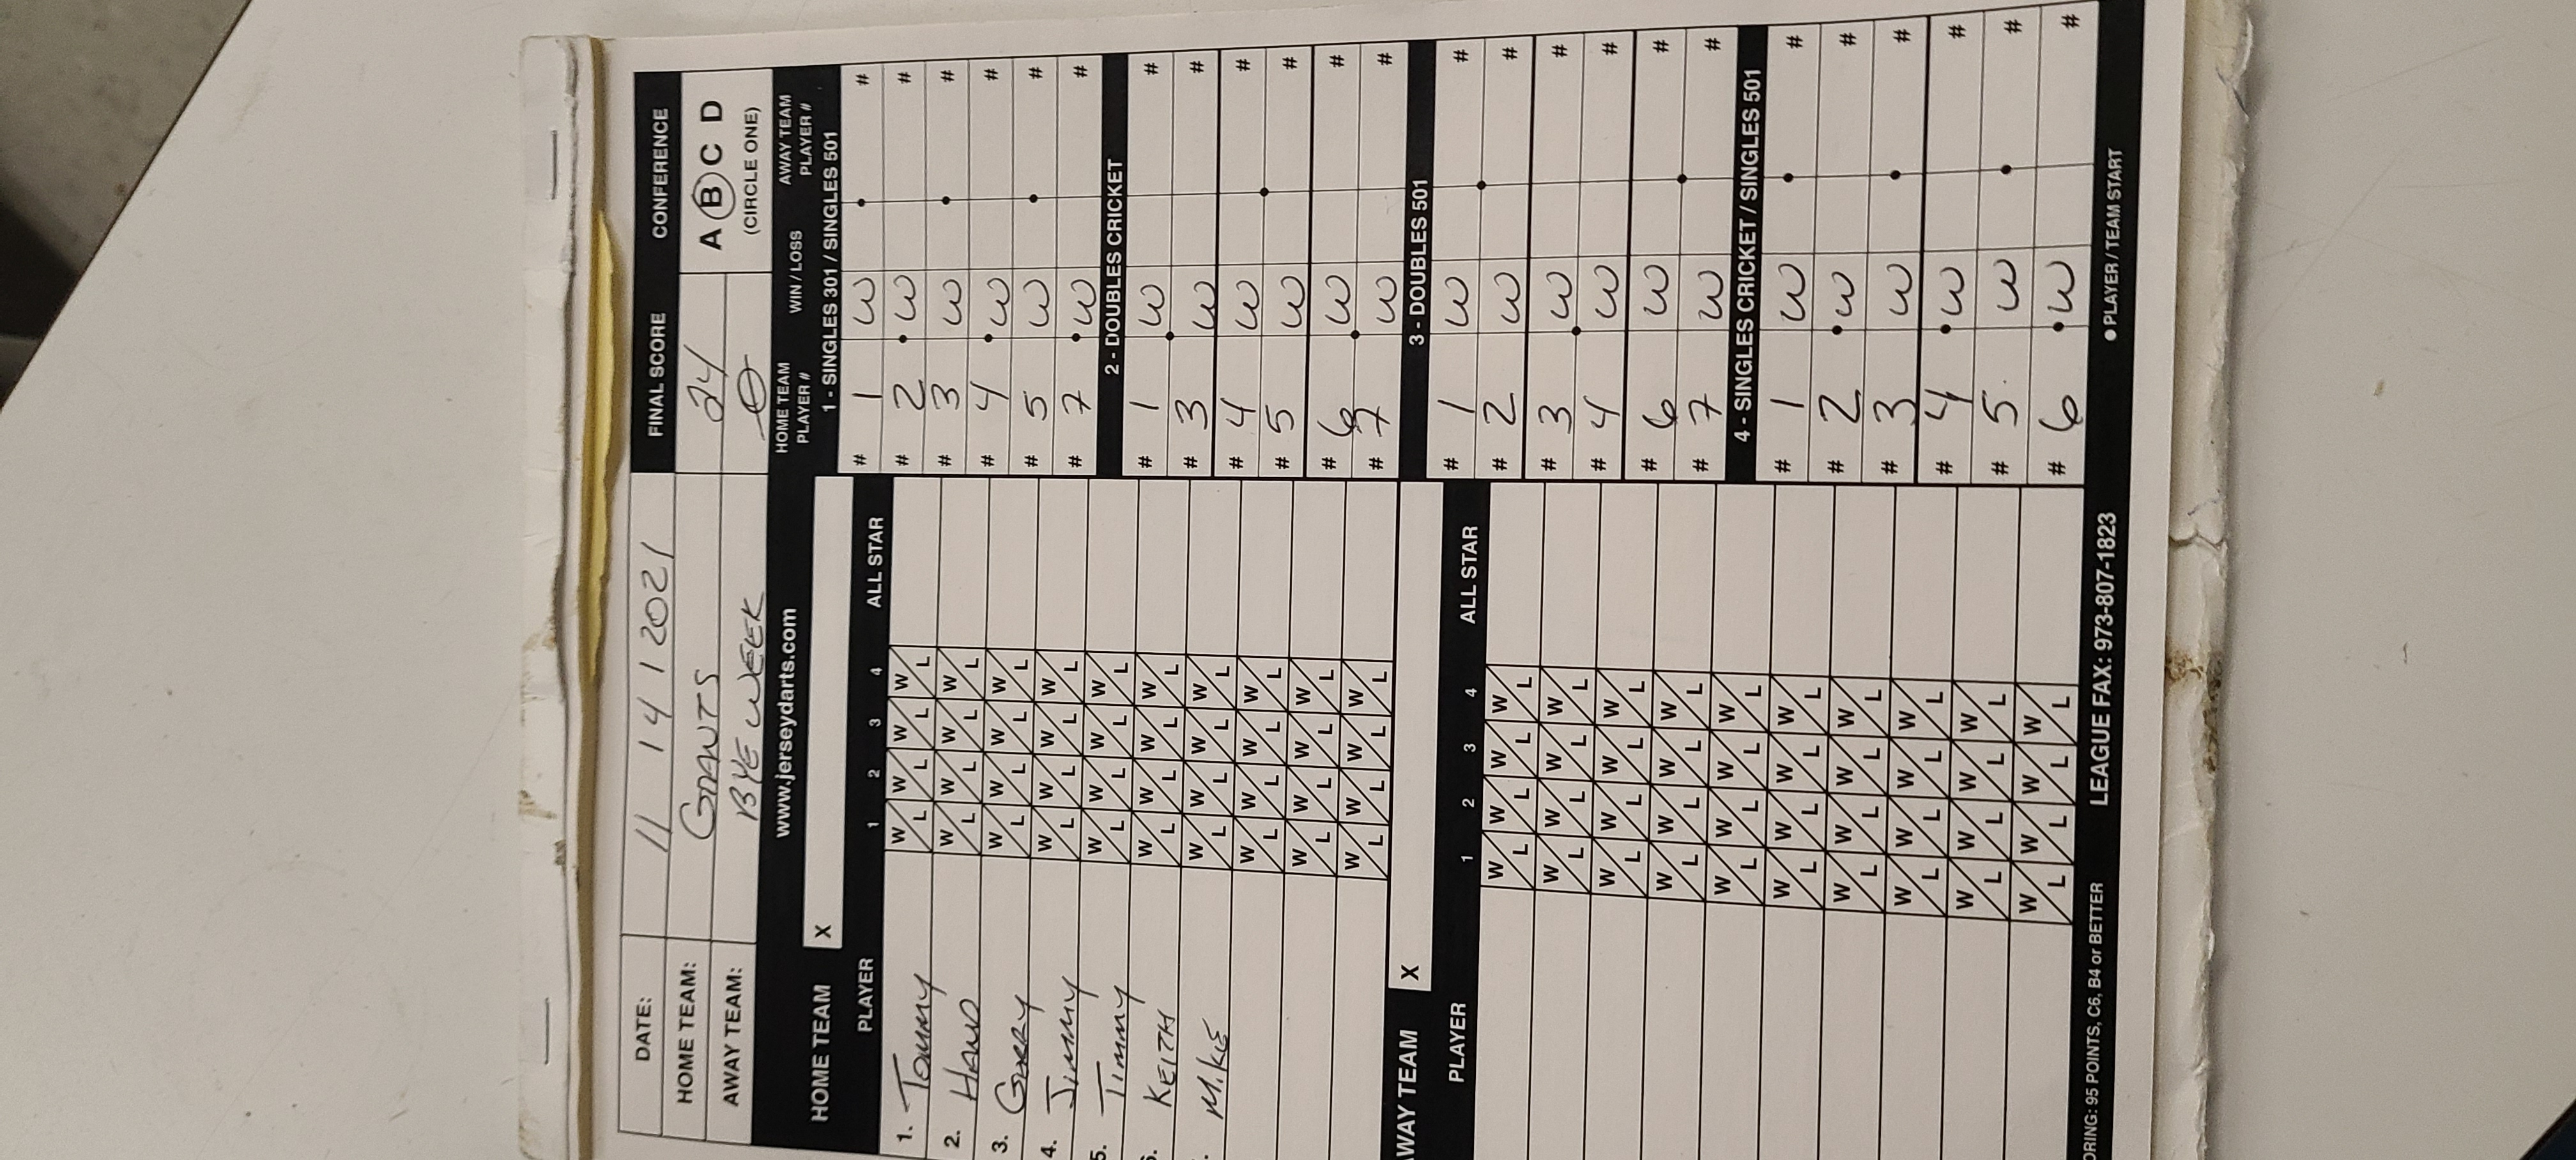 DATE: 11 / 4 / 2021 FINAL SCORE CONFERENCE
HOME TEAM: GRANTS 24 A B C D
AWAY TEAM: BYE WEEK 0 (CIRCLE ONE)
www.jerseydarts.com
HOME TEAM X
PLAYER 1 2 3 4 ALL STAR
1. TOMMY W L W L W L W L
2. W L W L W L W L
3. GARRY W L W L W L W L
4. JIMMY W L W L W L W L
5. TIMMY W L W L W L W L
6. KEITH W L W L W L W L
MIKE W L W L W L W L
W L W L W L W L
W L W L W L W L
W L W L W L W L
AWAY TEAM X
PLAYER 1 2 3 4 ALL STAR
W L W L W L W L
W L W L W L W L
W L W L W L W L
W L W L W L W L
W L W L W L W L
W L W L W L W L
W L W L W L W L
W L W L W L W L
W L W L W L W L
W L W L W L W L
HOME TEAM PLAYER # WIN / LOSS AWAY TEAM PLAYER #
1 - SINGLES 301 / SINGLES 501
# 1 W #
# 2 W #
# 3 W #
# 4 W #
# 5 W #
# 7 W #
2 - DOUBLES CRICKET
# 1 W #
# 3 W #
# 4 W #
# 5 W #
# 6 W #
# 7 W #
3 - DOUBLES 501
# 1 W #
# 2 W #
# 3 W #
# 4 W #
# 6 W #
# 7 W #
4 - SINGLES CRICKET / SINGLES 501
# 1 W #
# 2 W #
# 3 W #
# 4 W #
# 5 W #
# 6 W #
ORING: 95 POINTS, C6, B4 or BETTER LEAGUE FAX: 973-807-1823 ● PLAYER / TEAM START